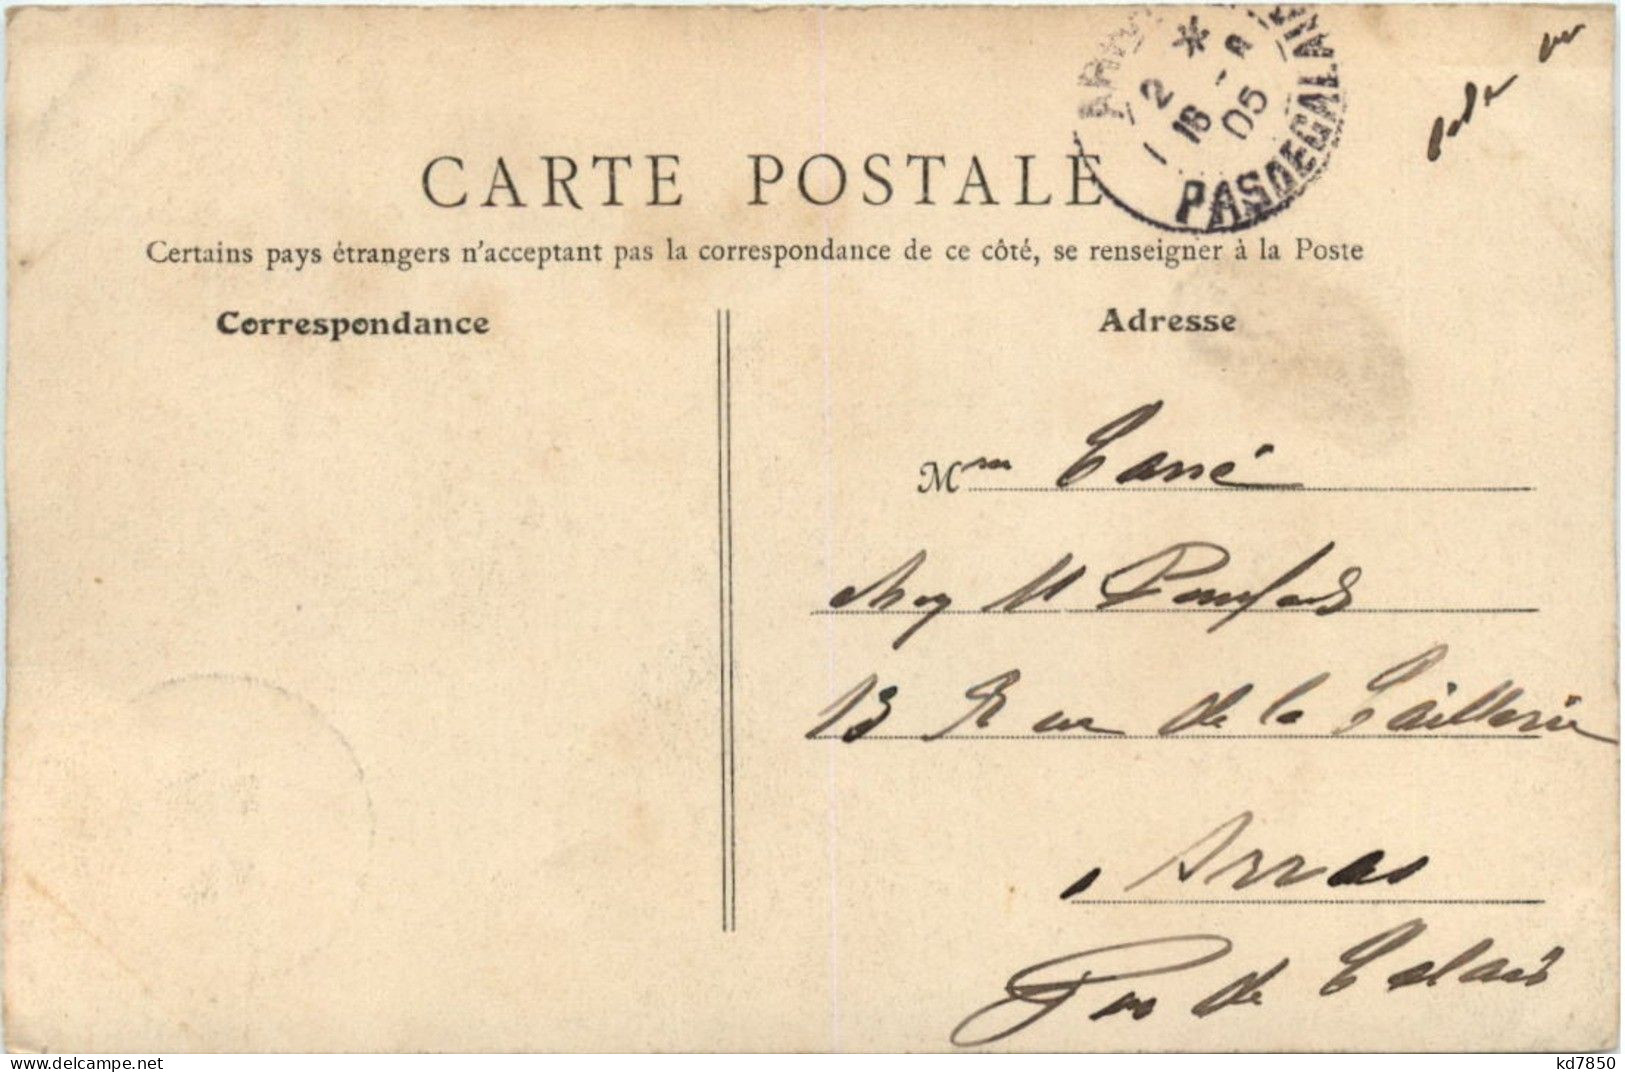 CARTE POSTALE
Certains pays étrangers n'acceptant pas la correspondance de ce côté, se renseigner à la Poste
Correspondance
Adresse
2
16 - 8
05
PAS DE CALAIS
M
13 Rue de la Taillerie
Arras
Pas de Calais
www.delcampe.net
kd7850